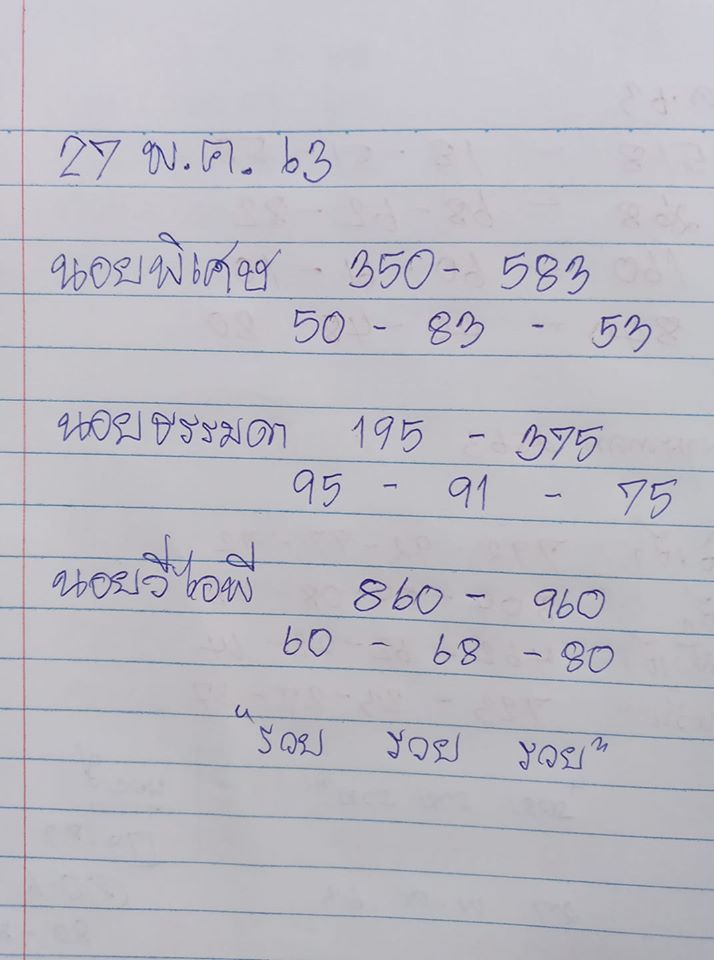 27 พ.ค. 63
นอยพิเศษ 350 - 583
50 - 83 - 53
นอยธรรมดา 195 - 375
95 - 91 - 75
นอยวีไอพี 860 - 960
60 - 68 - 80
"รวย รวย รวย"